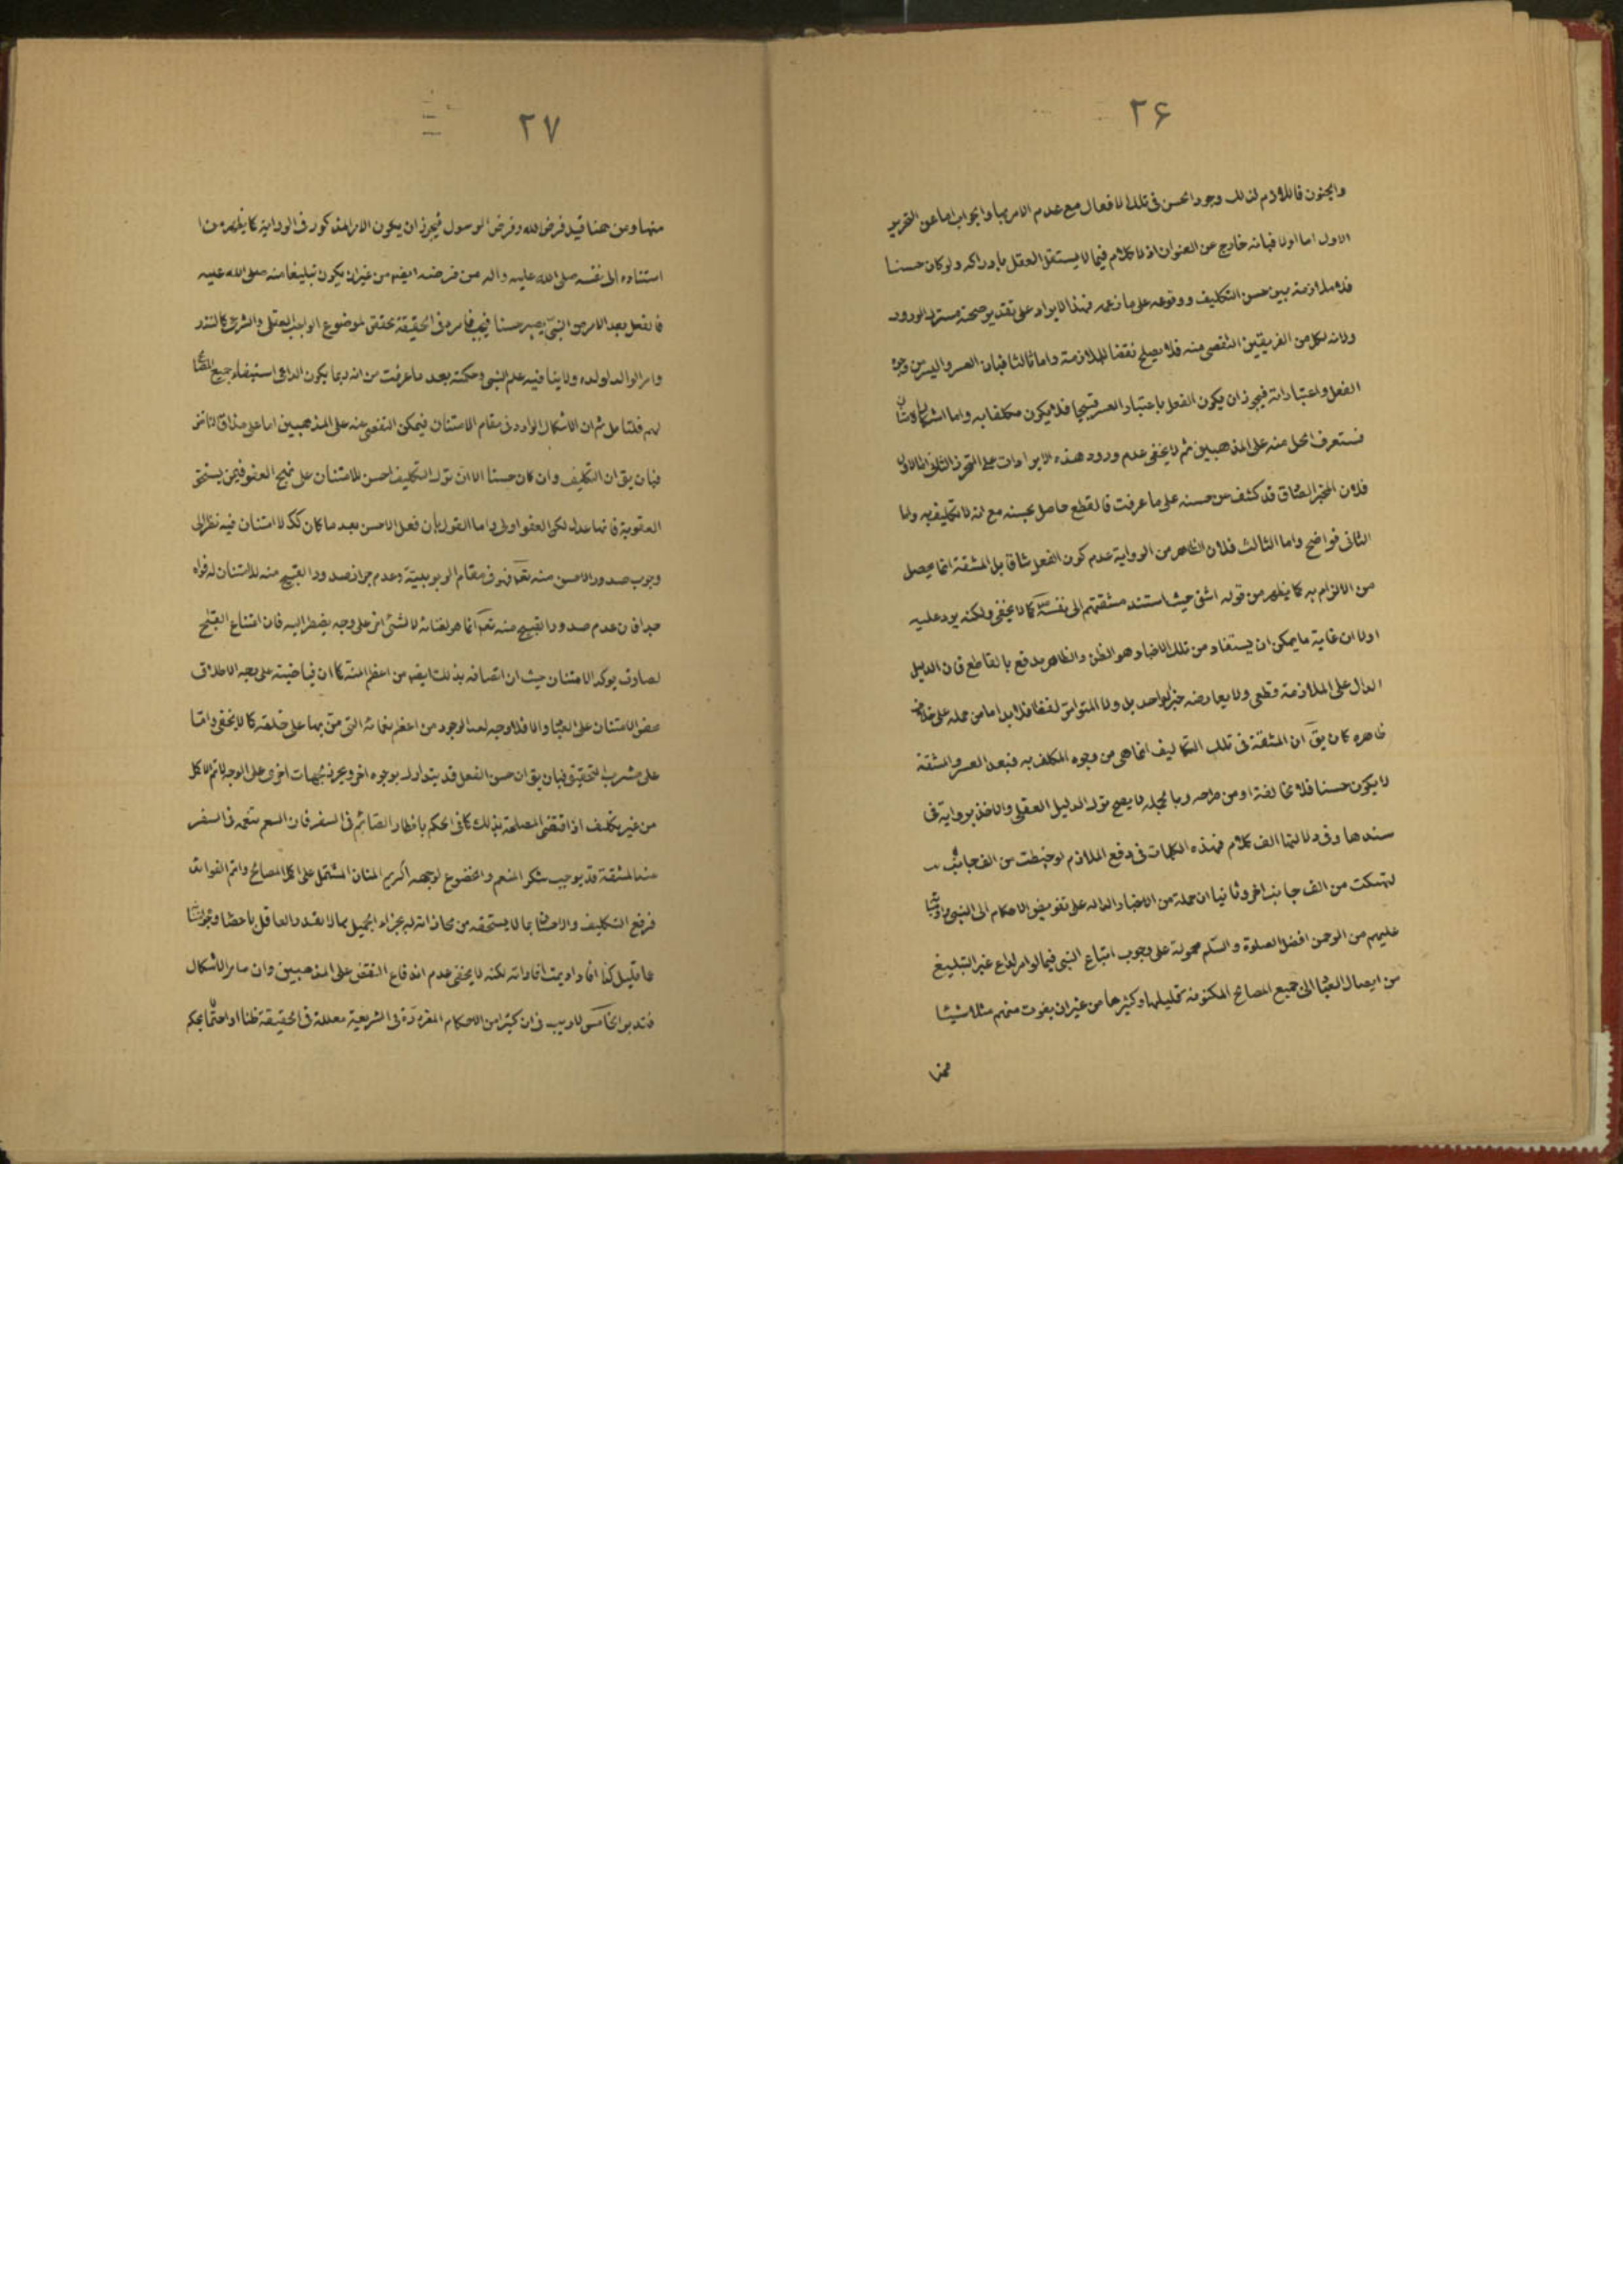 ۲۶
والجنون فاللازم لذلك وجود الحسن فى تلك الافعال مع عدم الامر بها والجواب اما عن التقرير
الاول اما اولا فبانه خارج عن العنوان اذ لا كلام فيما لا يستقل العقل بادراكه ولو كان حسنا
فلا ملازمة بين حسن التكليف ووقوعه على ما زعمه فهذا الايراد على تقدير صحته مشترك الورود
ولانه لكل من الفريقين التفصى منه فلا يصلح نقضا للملازمة واما ثالثا فبان العسر واليسر من وجوه
الفعل واعتباراته فيجوز ان يكون الفعل باعتبار العسر قبيحا فلا يكون مكلفا به واما اشكال الامتنان
فستعرف الحل منه على المذهبين ثم لا يخفى عدم ورود هذه الايرادات على التقرير الثانى اما الاول
فلان المخبر الصادق قد كشف عن حسنه على ما عرفت فالقطع حاصل بحسنه مع انه لا تكليف به واما
الثانى فواضح واما الثالث فلان الظاهر من الرواية عدم كون الفعل شاقا بل المشقة انما يحصل
من الالزام به كما يظهر من قوله اشق حيث استند مشقتهم الى نفسه كما لا يخفى ولكنه يرد عليه
اولا ان غاية ما يمكن ان يستفاد من تلك الاخبار هو الظن والظاهر يدفع بالقاطع فان الدليل
الدال على الملازمة قطعى ولا يعارضه خبر الواحد بل ولا المتواتر لفظا فلا بد اما من حمله على خلاف
ظاهره كان يق ان المشقة فى تلك التكاليف انما هى من وجوه المكلف به فبعد العسر والمشقة
لا يكون حسنا فلا مخالفة او من طرحه وبالجمله لا يصح ترك الدليل العقلى والاخذ برواية فى
سندها وفى دلالتها الف كلام فهذه الكلمات فى دفع الملازم لو حفظت من الف جانب
لهتكت من الف جانب اخر وثانيا ان جملة من الاخبار الداله على تفويض الاحكام الى النبى
عليهم من الرحمن افضل الصلوة والسلم محمولة على وجوب اتباع النبى فيما لو امر لداع غير التبليغ
من ايصال العباد الى جميع المصالح المكنونة قليلها وكثيرها من غير ان يفوت منهم مثلا شيئا
منها
۲۷
منها ومن هنا قيل فرض الله وفرض الرسول فيجوز ان يكون الامر المذكور فى الرواية كما يظهر من
استناده الى نفسه صلى الله عليه واله من فرضه ايضا من غير ان يكون تبليغا منه صلى الله عليه
فالفعل بعد الامر من النبى يصير حسنا فيجب فامره فى الحقيقة محقق لموضوع الواجب العقلى والشرعى كالنذر
وامر الوالد لولده ولا ينافيه علم النبى وحكمته بعد ما عرفت من انه ربما يكون الداعى استيفاء جميع المصالح
لهم فلتامل ثم ان الاشكال الوارد فى مقام الامتنان فيمكن التفصى عنه على المذهبين اما على مذاق
فبان يق ان التكليف وان كان حسنا الا ان ترك التكليف احسن للامتنان على نهج العفو فيمن يستحق
العقوبة فانها عدل لكن العفو اولى واما القول بان فعل الاحسن بعد ما كان كك لا امتنان فيه نظرا الى
وجوب صدور الاحسن منه تعالى فهو فى مقام الربوبية وعدم جواز صدور القبيح منه للامتنان له فواه
جدا فان عدم صدور القبيح منه تعالى انما هو لغنائه لا لشئ اخر على وجه يضطر اليه فان امتناع القبيح
لصارف يؤكد الامتنان حيث ان اتصافه بذلك ايضا من اعظم المنة كما ان فياضيته على وجه الاطلاق
محض الامتنان على العباد والا فلا وجه لعد الوجود من اعظم نعمائه التى من بها على خلقه كما لا يخفى واما
على مشرب التحقيق فبان يق ان حسن الفعل قد يتدارك بوجوه اخر ويحرز بجهات اخرى على الوجه الاتم الاكل
من غير تكليف اذا اقتضى المصلحة بذلك كما فى الحكم بافطار الصائم فى السفر فان السعى بنعمه فى السفر
منه المشقة قد يوجب شكر المنعم والخضوع لوجهه اكريم المنان المشتمل على اكل المصالح واتم الفوائد
فرفع التكليف والاحسان بما لا يستحقه من مجازاته له بجزاء الجميل مما لا يقدر العاقل باحصاء
عما قليل كذا افاد اديمت افاداته لكنه لا يخفى عدم اندفاع النقض على المذهبين وان سامر الاشكال
فتدبر الخامس لا ريب فى ان كثيرا من الاحكام المقررة فى الشريعة معللة فى الحقيقة ظنا او احتمالا بحكم